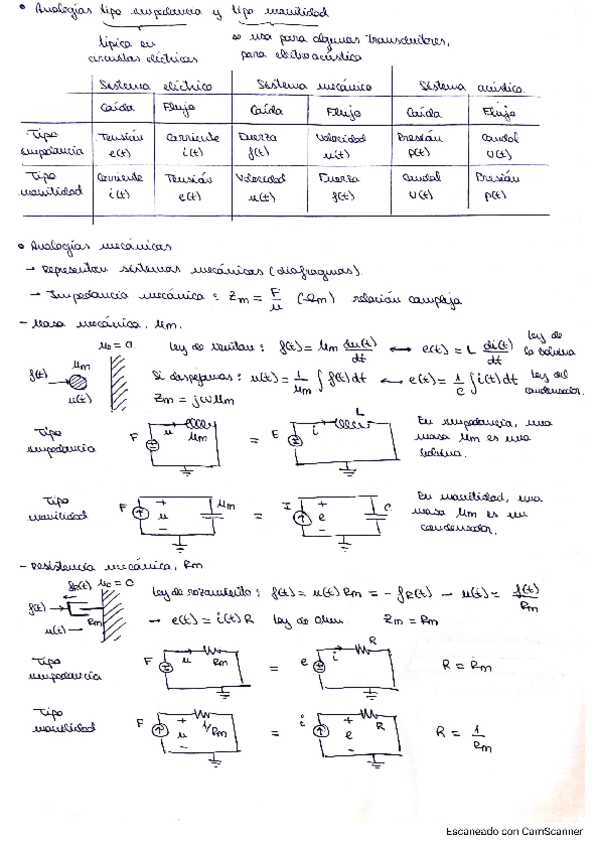 • Analogías tipo impedancia y tipo movilidad
típica en circuitos eléctricos
se usa para algunos transductores, para electroacústica
Sistema eléctrico Sistema mecánico Sistema acústico
Caída Flujo Caída Flujo Caída Flujo
Tipo impedancia Tensión e(t) Corriente i(t) Fuerza f(t) Velocidad u(t) Presión p(t) Caudal U(t)
Tipo movilidad Corriente i(t) Tensión e(t) Velocidad u(t) Fuerza f(t) Caudal U(t) Presión p(t)
• Analogías mecánicas
→ Representan sistemas mecánicos (diafragmas).
→ Impedancia mecánica: Zm = F/u (Ωm) relación compleja
- Masa mecánica, Mm.
u₀ = 0 Ley de Newton: f(t) = Mm du(t)/dt ↔ e(t) = L di(t)/dt Ley de la bobina
f(t) Mm u(t) Si despejamos: u(t) = 1/Mm ∫ f(t) dt ↔ e(t) = 1/C ∫ i(t) dt Ley del condensador.
Zm = jωMm
Tipo impedancia F u Mm = E i L En impedancia, una masa Mm es una bobina.
Tipo movilidad F + u - Mm = I + e - C En movilidad, una masa Mm es un condensador.
- Resistencia mecánica, Rm
fR(t) u₀ = 0 Ley de rozamiento: f(t) = u(t) Rm = - fR(t) → u(t) = f(t)/Rm
f(t) Rm u(t) → e(t) = i(t) R Ley de Ohm Zm = Rm
Tipo impedancia F u Rm = e i R R = Rm
Tipo movilidad F + u - 1/Rm = i + e - R R = 1/Rm
Escaneado con CamScanner